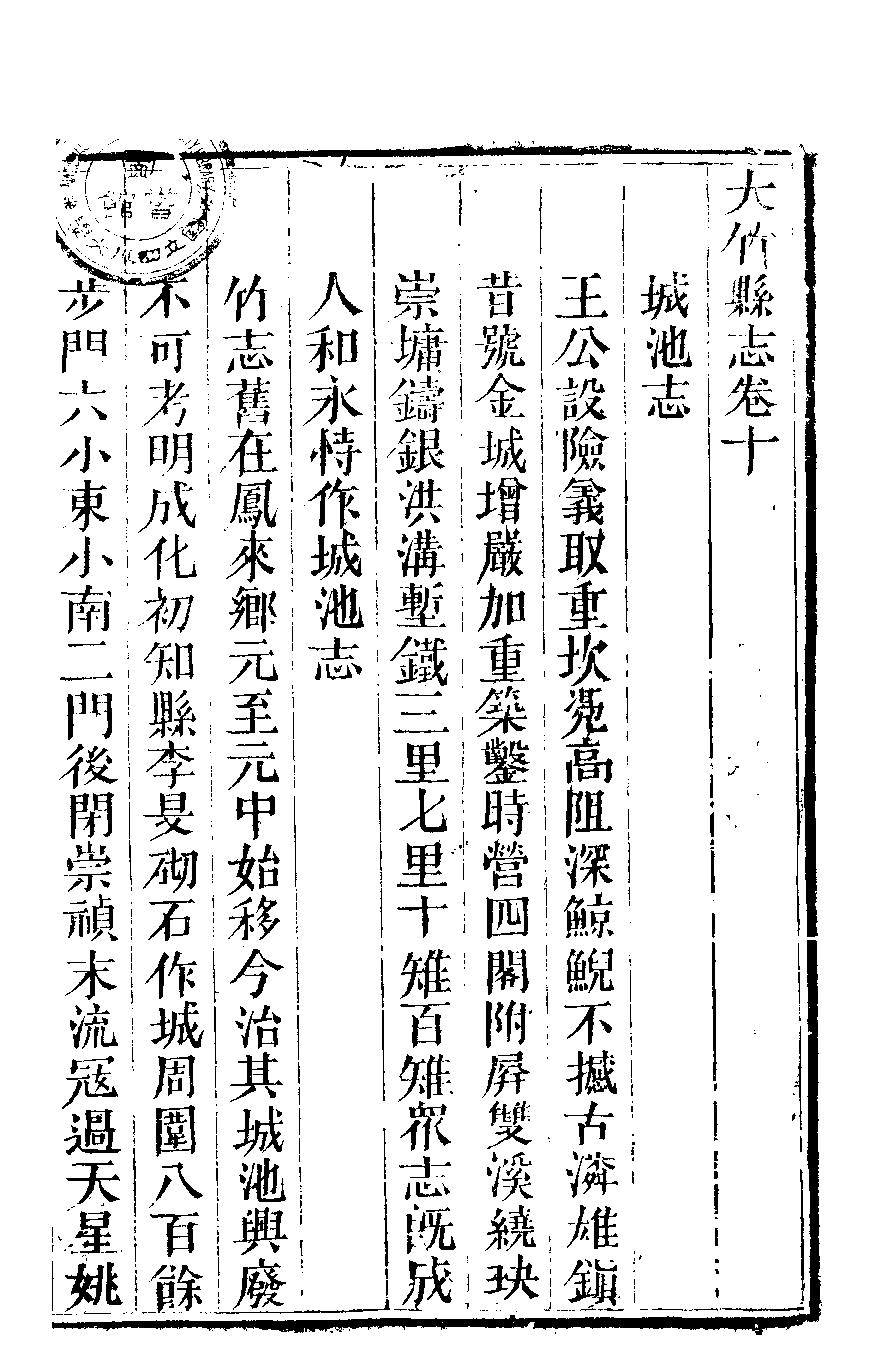 大竹縣志卷十
城池志
王公設險義取重坎凭高阻深鯨鯢不撼古潾雄鎭
昔號金城增嚴加重築鑿時營四閣附屏雙溪繞玦
崇墉鑄銀洪溝塹鐵三里七里十雉百雉衆志旣成
人和永恃作城池志
竹志舊在鳳來鄉元至元中始移今治其城池興廢
不可考明成化初知縣李旻砌石作城周圍八百餘
步門六小東小南二門後閉崇禎末流寇過天星姚